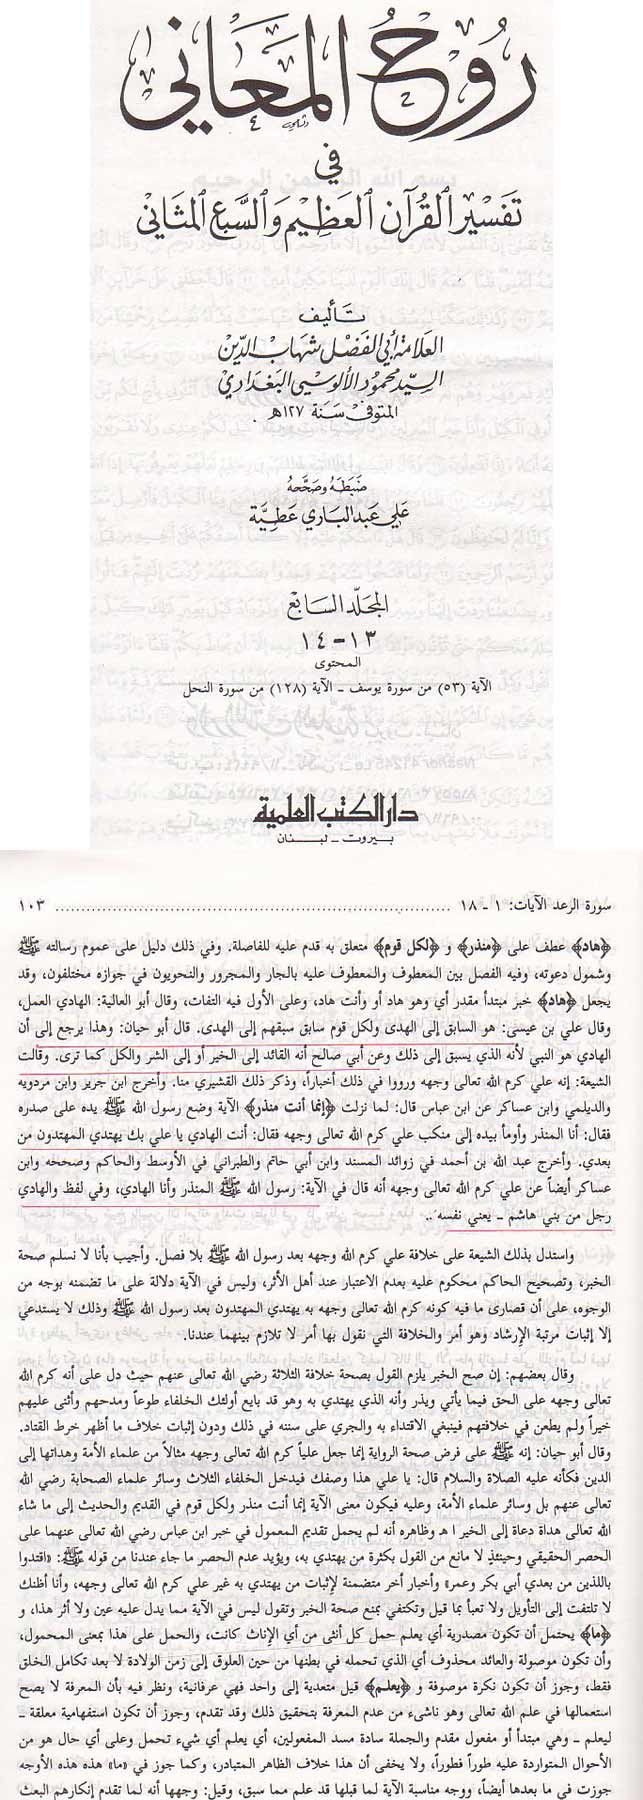 روح المعاني
في
تفسير القرآن العظيم والسبع المثاني
تأليف
العلامة أبي الفضل شهاب الدين
السيد محمود الألوسي البغدادي
المتوفى سنة ١٢٧ هـ
ضبطه وصححه
علي عبد الباري عطية
المجلد السابع
١٣-١٤
المحتوى
الآية (٥٣) من سورة يوسف - الآية (١٢٨) من سورة النحل
دار الكتب العلمية
بيروت - لبنان
سورة الرعد الآيات: ١ - ١٨ .......... ١٠٣
﴿هاد﴾ عطف على ﴿منذر﴾ و ﴿لكل قوم﴾ متعلق به قدم عليه للفاصلة. وفي ذلك دليل على عموم رسالته ﷺ
وشمول دعوته، وفيه الفصل بين المعطوف والمعطوف عليه بالجار والمجرور والنحويون في جوازه مختلفون، وقد
يجعل ﴿هاد﴾ خبر مبتدأ مقدر أي وهو هاد أو وأنت هاد، وعلى الأول فيه التفات، وقال أبو العالية: الهادي العمل،
وقال علي بن عيسى: هو السابق إلى الهدى ولكل قوم سابق سبقهم إلى الهدى. قال أبو حيان: وهذا يرجع إلى أن
الهادي هو النبي لأنه الذي يسبق إلى ذلك وعن أبي صالح أنه القائد إلى الخير أو إلى الشر والكل كما ترى. وقالت
الشيعة: إنه علي كرم الله تعالى وجهه ورووا في ذلك أخباراً، وذكر ذلك القشيري منا. وأخرج ابن جرير وابن مردويه
والديلمي وابن عساكر عن ابن عباس قال: لما نزلت ﴿إنما أنت منذر﴾ الآية وضع رسول الله ﷺ يده على صدره
فقال: أنا المنذر وأومأ بيده إلى منكب علي كرم الله تعالى وجهه فقال: أنت الهادي يا علي بك يهتدي المهتدون من
بعدي. وأخرج عبد الله بن أحمد في زوائد المسند وابن أبي حاتم والطبراني في الأوسط والحاكم وصححه وابن
عساكر أيضاً عن علي كرم الله تعالى وجهه أنه قال في الآية: رسول الله ﷺ المنذر وأنا الهادي، وفي لفظ والهادي
رجل من بني هاشم - يعني نفسه ..
واستدل بذلك الشيعة على خلافة علي كرم الله وجهه بعد رسول الله ﷺ بلا فصل. وأجيب بأنا لا نسلم صحة
الخبر، وتصحيح الحاكم محكوم عليه بعدم الاعتبار عند أهل الأثر، وليس في الآية دلالة على ما تضمنه بوجه من
الوجوه، على أن قصارى ما فيه كونه كرم الله تعالى وجهه به يهتدي المهتدون بعد رسول الله ﷺ وذلك لا يستدعي
إلا إثبات مرتبة الإرشاد وهو أمر والخلافة التي نقول بها أمر لا تلازم بينهما عندنا.
وقال بعضهم: إن صح الخبر يلزم القول بصحة خلافة الثلاثة رضي الله تعالى عنهم حيث دل على أنه كرم الله
تعالى وجهه على الحق فيما يأتي ويذر وأنه الذي يهتدي به وهو قد بايع أولئك الخلفاء طوعاً ومدحهم وأثنى عليهم
خيراً ولم يطعن في خلافتهم فينبغي الاقتداء به والجري على سننه في ذلك ودون إثبات خلاف ما أظهر خرط القتاد.
وقال أبو حيان: إنه ﷺ على فرض صحة الرواية إنما جعل علياً كرم الله تعالى وجهه مثالاً من علماء الأمة وهداتها إلى
الدين فكأنه عليه الصلاة والسلام قال: يا علي هذا وصفك فيدخل الخلفاء الثلاث وسائر علماء الصحابة رضي الله
تعالى عنهم بل وسائر علماء الأمة، وعليه فيكون معنى الآية إنما أنت منذر ولكل قوم في القديم والحديث إلى ما شاء
الله تعالى هداة دعاة إلى الخير ا هـ وظاهره أنه لم يحمل تقديم المعمول في خبر ابن عباس رضي الله تعالى عنهما على
الحصر الحقيقي وحينئذ لا مانع من القول بكثرة من يهتدي به، ويؤيد عدم الحصر ما جاء عندنا من قوله ﷺ: «اقتدوا
باللذين من بعدي أبي بكر وعمر» وأخبار أخر متضمنة لإثبات من يهتدي به غير علي كرم الله تعالى وجهه، وأنا أظنك
لا تلتفت إلى التأويل ولا تعبأ بما قيل وتكتفي بمنع صحة الخبر وتقول ليس في الآية مما يدل عليه عين ولا أثر هذا، و
﴿ما﴾ يحتمل أن تكون مصدرية أي يعلم حمل كل أنثى من أي الإناث كانت، والحمل على هذا بمعنى المحمول،
وأن تكون موصولة والعائد محذوف أي الذي تحمله في بطنها من حين العلوق إلى زمن الولادة لا بعد تكامل الخلق
فقط، وجوز أن تكون نكرة موصوفة و ﴿يعلم﴾ قيل متعدية إلى واحد فهي عرفانية، ونظر فيه بأن المعرفة لا يصح
استعمالها في علم الله تعالى وهو ناشىء من عدم المعرفة بتحقيق ذلك وقد تقدم، وجوز أن تكون استفهامية معلقة -
ليعلم - وهي مبتدأ أو مفعول مقدم والجملة سادة مسد المفعولين، أي يعلم أي شيء تحمل وعلى أي حال هو من
الأحوال المتواردة عليه طوراً فطوراً، ولا يخفى أن هذا خلاف الظاهر المتبادر، وكما جوز في «ما» هذه هذه الأوجه
جوزت في ما بعدها أيضاً، ووجه مناسبة الآية لما قبلها قد علم مما سبق، وقيل: وجهها أنه لما تقدم إنكارهم البعث